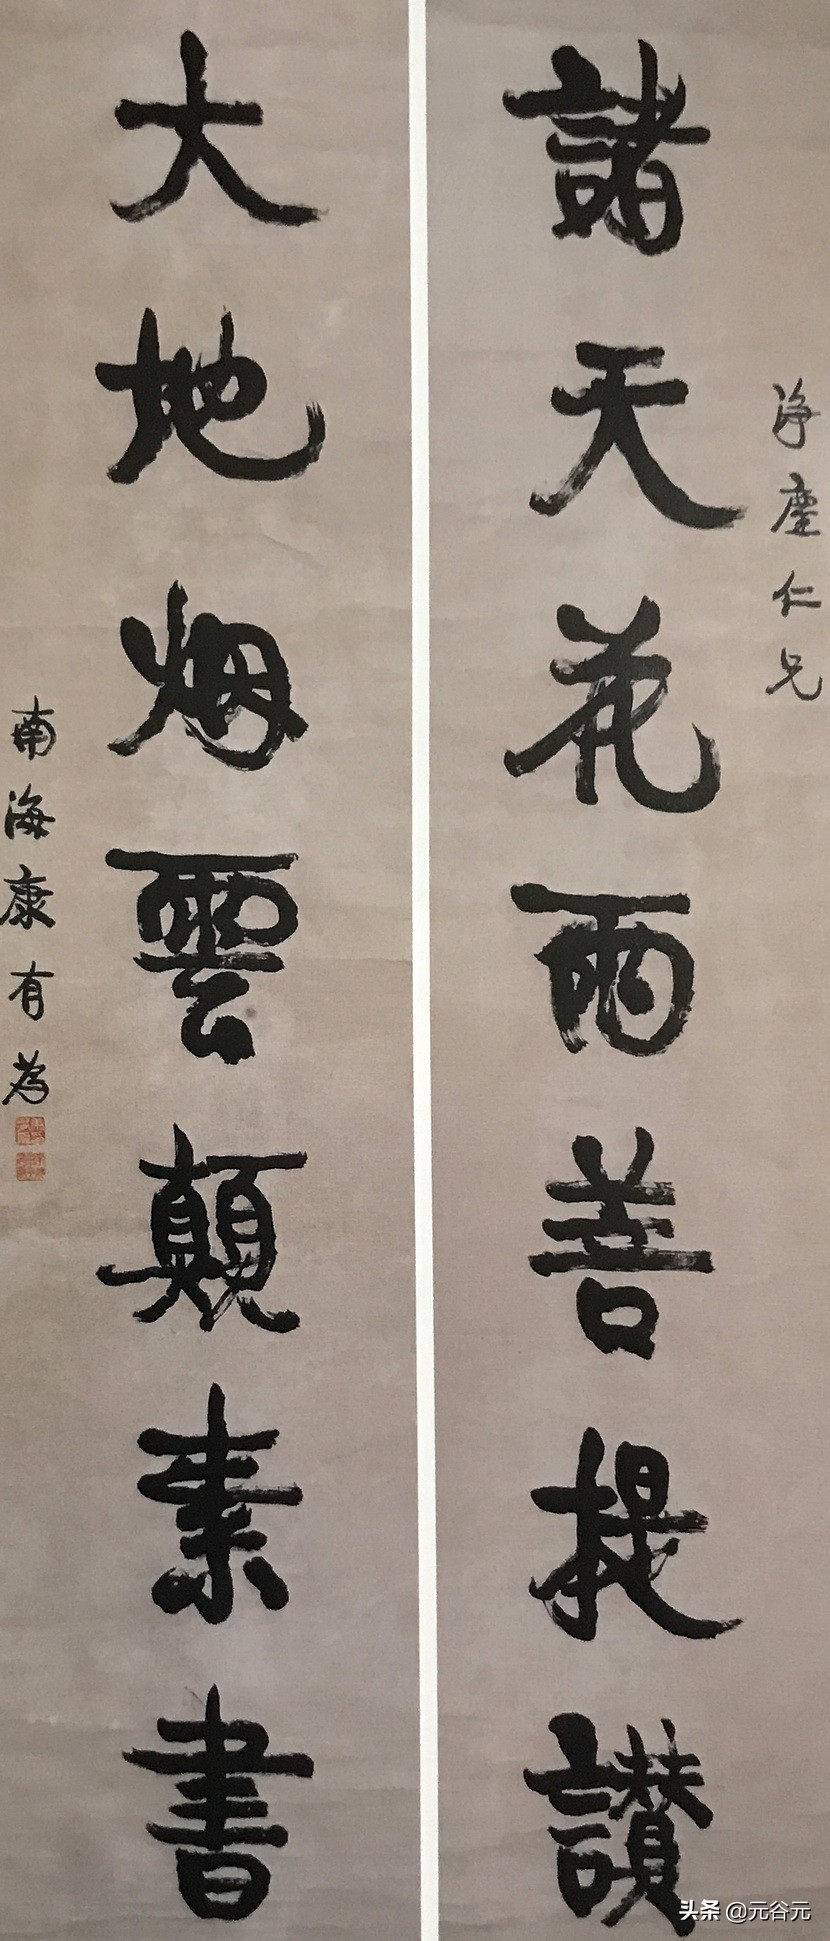 淨塵仁兄
諸天花雨善提讚
大地烟雲顛素書
南海康有為
头条 @元谷元